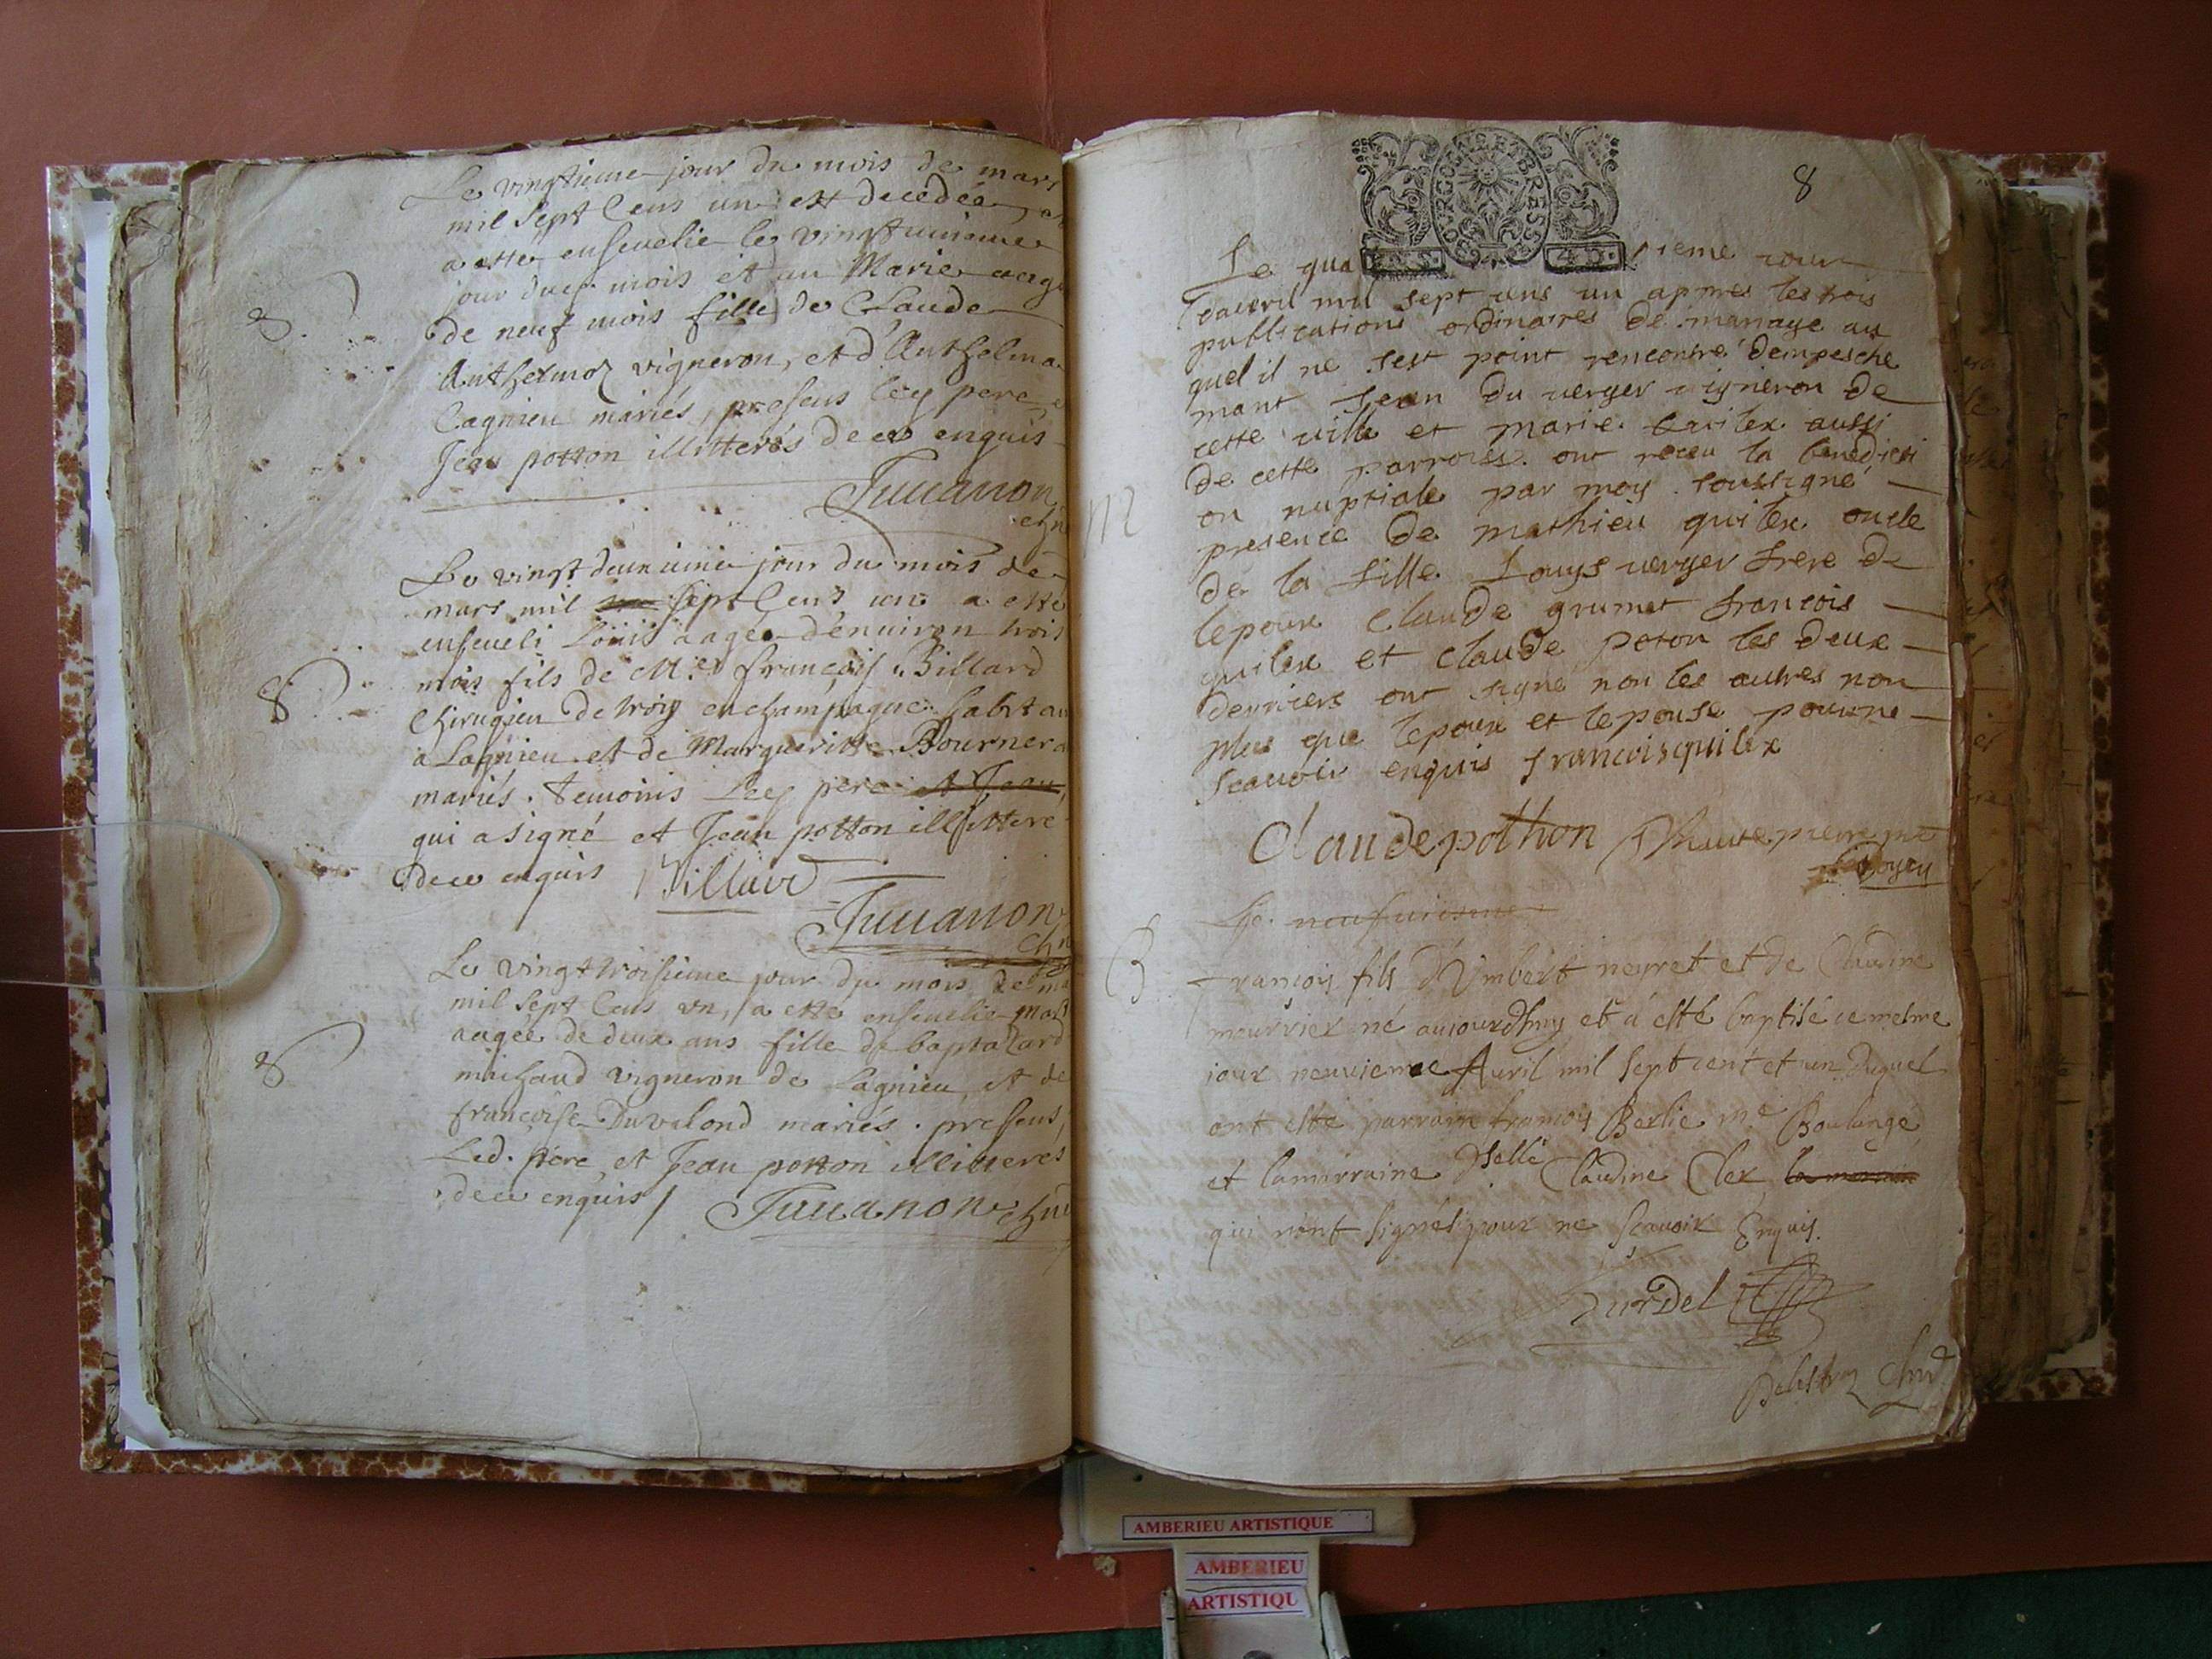 Le vingtieme jour du mois de mars
mil sept Cens un est decedée, a
a esté enseuelie le vingt unieme
jour duel mois et an Marie aagé
de neuf mois fille de Claude
Anthelmoz vigneron, et d'Anthelma
Cagnieu mariés, presens ley pere e
Jean potton illitterés de ce enquis
Juuanon
chne
Le vingt deuxieme jour du mois de
mars mil sept Cens un a esté
enseueli Loüis aagé d'enuiron trois
mois fils de Mre françois Billard
Chirugien de troys en champagne habitan
a Lagnieu et de Margueritte Bournera
mariés. temoins Ley pere et Jean
qui a signé et Jean potton illittere
de ce enquis Billard
Juuanon
chn
Le vingt troisieme jour du mois de ma
mil sept Cens un, a esté enseuelie
aagée de deux ans fille de baptazard
michaud vigneron de Lagnieu, et de
francoise Duvalond mariés. presens,
Led. pere et Jean potton illitteres
de ce enquis / Juuanon chne
8
BOURGOGNE BRESSE
Le qua ieme iour
dauril mil sept cens un apprés les trois
publications ordinaires de mariage au
quel il ne sest point rencontré dempesche
mant Jean du uerger uigneron de
cette uille et marie quilex aussi
de cette parroisse ont receu la benedicti
on nuptiale par moy soussigné
M
presence de mathieu quilex oncle
de la fille Louys uerger frere de
lepoux Claude grumet francois
quilex et claude poton les deux
derniers ont signé non les autres non
plus que lepoux et lepouse pour ne
scauoir enquis francois quilex
Claude pothon Dhautepierre pre
Doyen
Le neufuieme
B
francois fils d'Umbert neyret et de Claudine
meurier né aujourdhuy et à esté baptisé ce mesme
iour neuuieme Auril mil sept cent et un duquel
ont esté parrain francois Berlie me Boulangé
et la marraine Dselle Claudine Clex
qui n'ont signés pour ne Scauoir Enquis.
Jurdel
chne
AMBERIEU ARTISTIQUE
AMBERIEU
ARTISTIQU